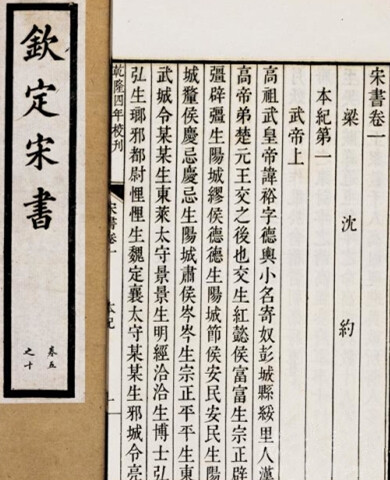 宋書卷一
梁 沈 約
本紀第一
武帝上
高祖武皇帝諱裕字德輿小名寄奴彭城縣綏里人漢
高帝弟楚元王交之後也交生紅懿侯富富生宗正辟
彊辟彊生陽城繆侯德德生陽城節侯安民安民生陽
城釐侯慶忌慶忌生陽城肅侯岑岑生宗正平平生東
武城令某某生東萊太守景景生明經洽洽生博士弘
弘生瑯邪都尉悝悝生魏定襄太守某某生邪城令亮
乾隆四年校刊 宋書卷一 本紀 一
欽定宋書
卷五
之十